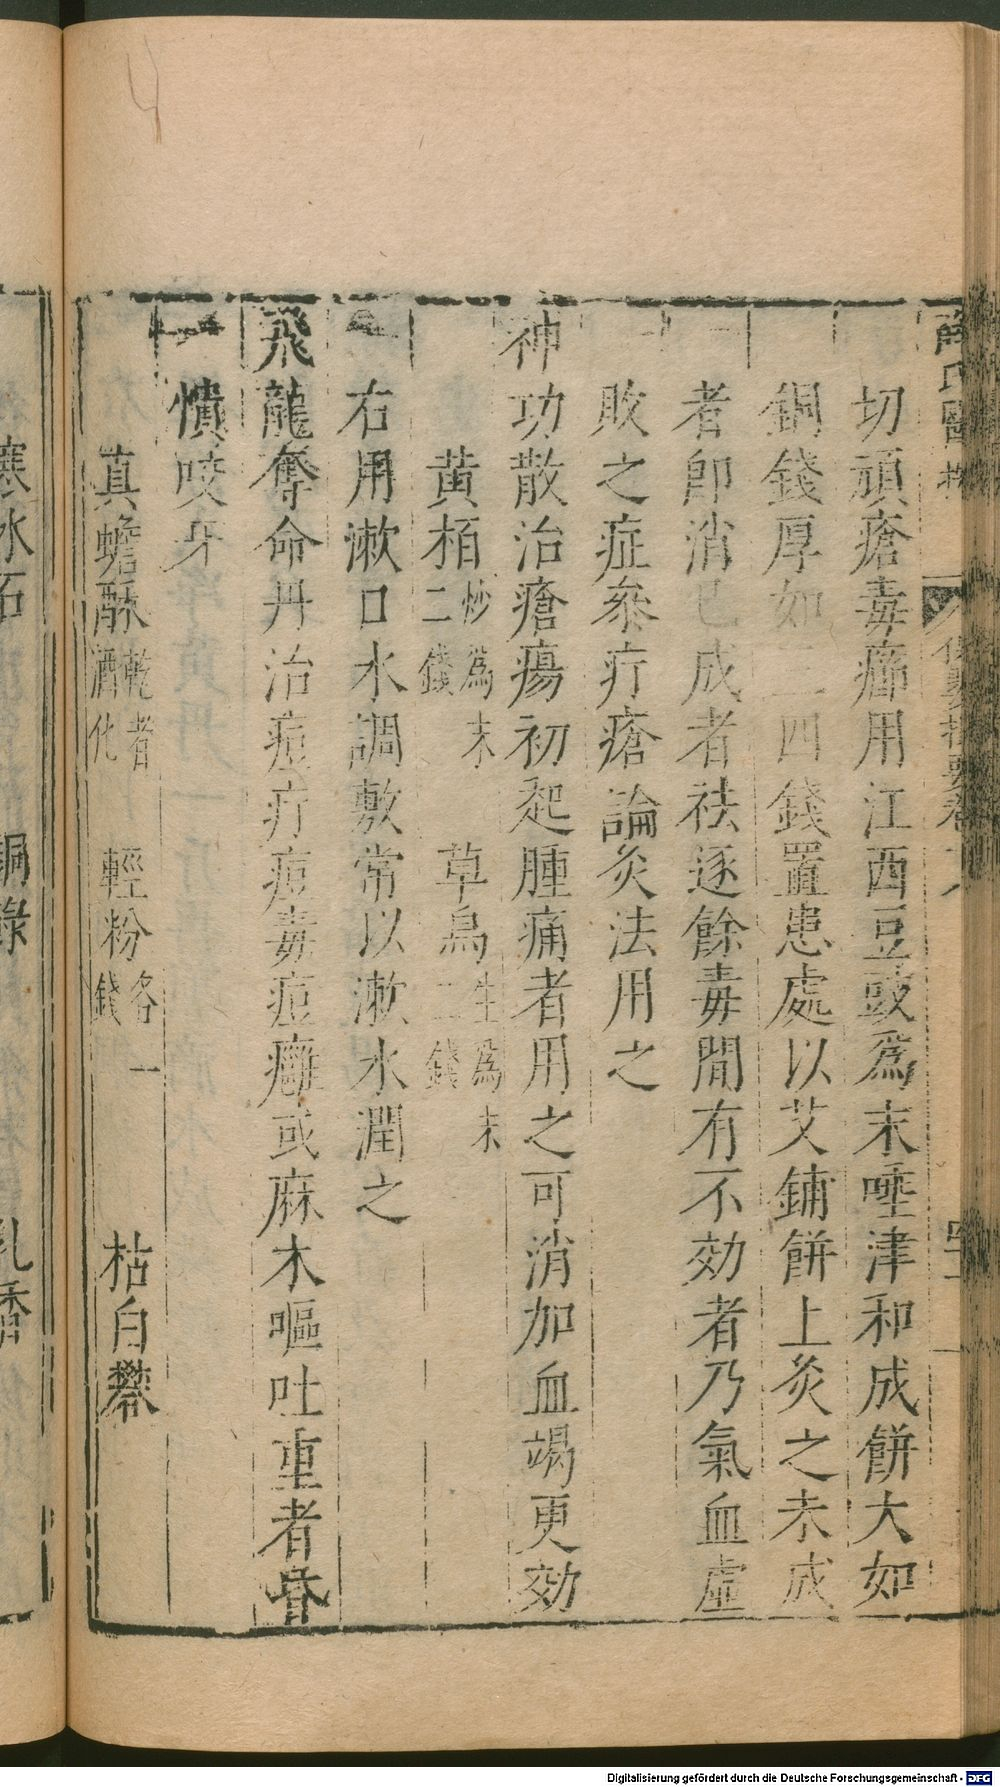 切頑瘡毒癤用江西豆豉爲末唾津和成餅大如
銅錢厚如三四錢置患處以艾鋪餅上灸之未成
者卽消已成者祛逐餘毒間有不効者乃氣血虛
敗之症叅疔瘡論灸法用之
神功散治瘡瘍初起腫痛者用之可消加血竭更効
黄栢炒爲末二錢 草烏生爲末二錢
右用漱口水調敷常以漱水潤之
飛龍奪命丹治痘疔痘毒痘癰或麻木嘔吐重者昏
憒咬牙
真蟾酥乾者酒化 輕粉各一錢 枯白礬
寒水石 銅綠 乳香
Digitalisierung gefördert durch die Deutsche Forschungsgemeinschaft - DFG